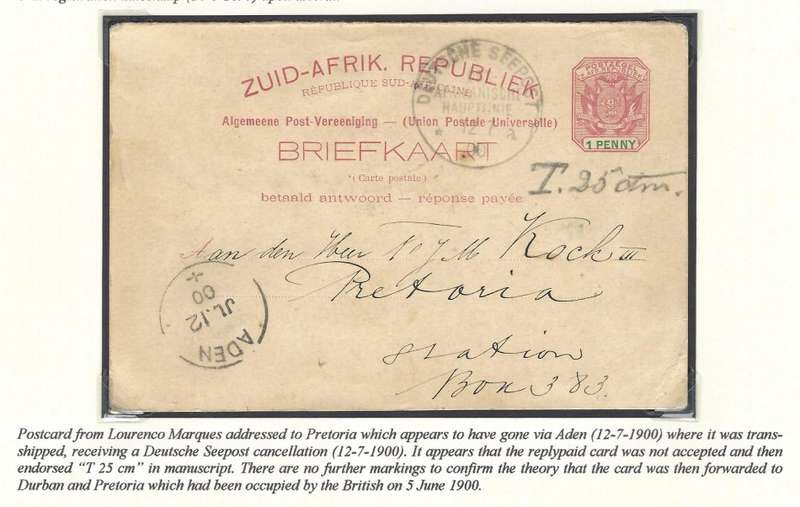 ZUID-AFRIK. REPUBLIEK
RÉPUBLIQUE SUD-AFRICAINE
Algemeene Post-Vereeniging — (Union Postale Universelle)
BRIEFKAART
(Carte postale)
betaald antwoord — réponse payée
1 PENNY
DEUTSCHE SEEPOST
HAUPTLINIE
12 7
00
T. 25 ctm.
Aan den Heer
Kock
Pretoria
station
Box 383.
ADEN
JL.12
00
Postcard from Lourenco Marques addressed to Pretoria which appears to have gone via Aden (12-7-1900) where it was trans-
shipped, receiving a Deutsche Seepost cancellation (12-7-1900). It appears that the replypaid card was not accepted and then
endorsed “T 25 cm” in manuscript. There are no further markings to confirm the theory that the card was then forwarded to
Durban and Pretoria which had been occupied by the British on 5 June 1900.